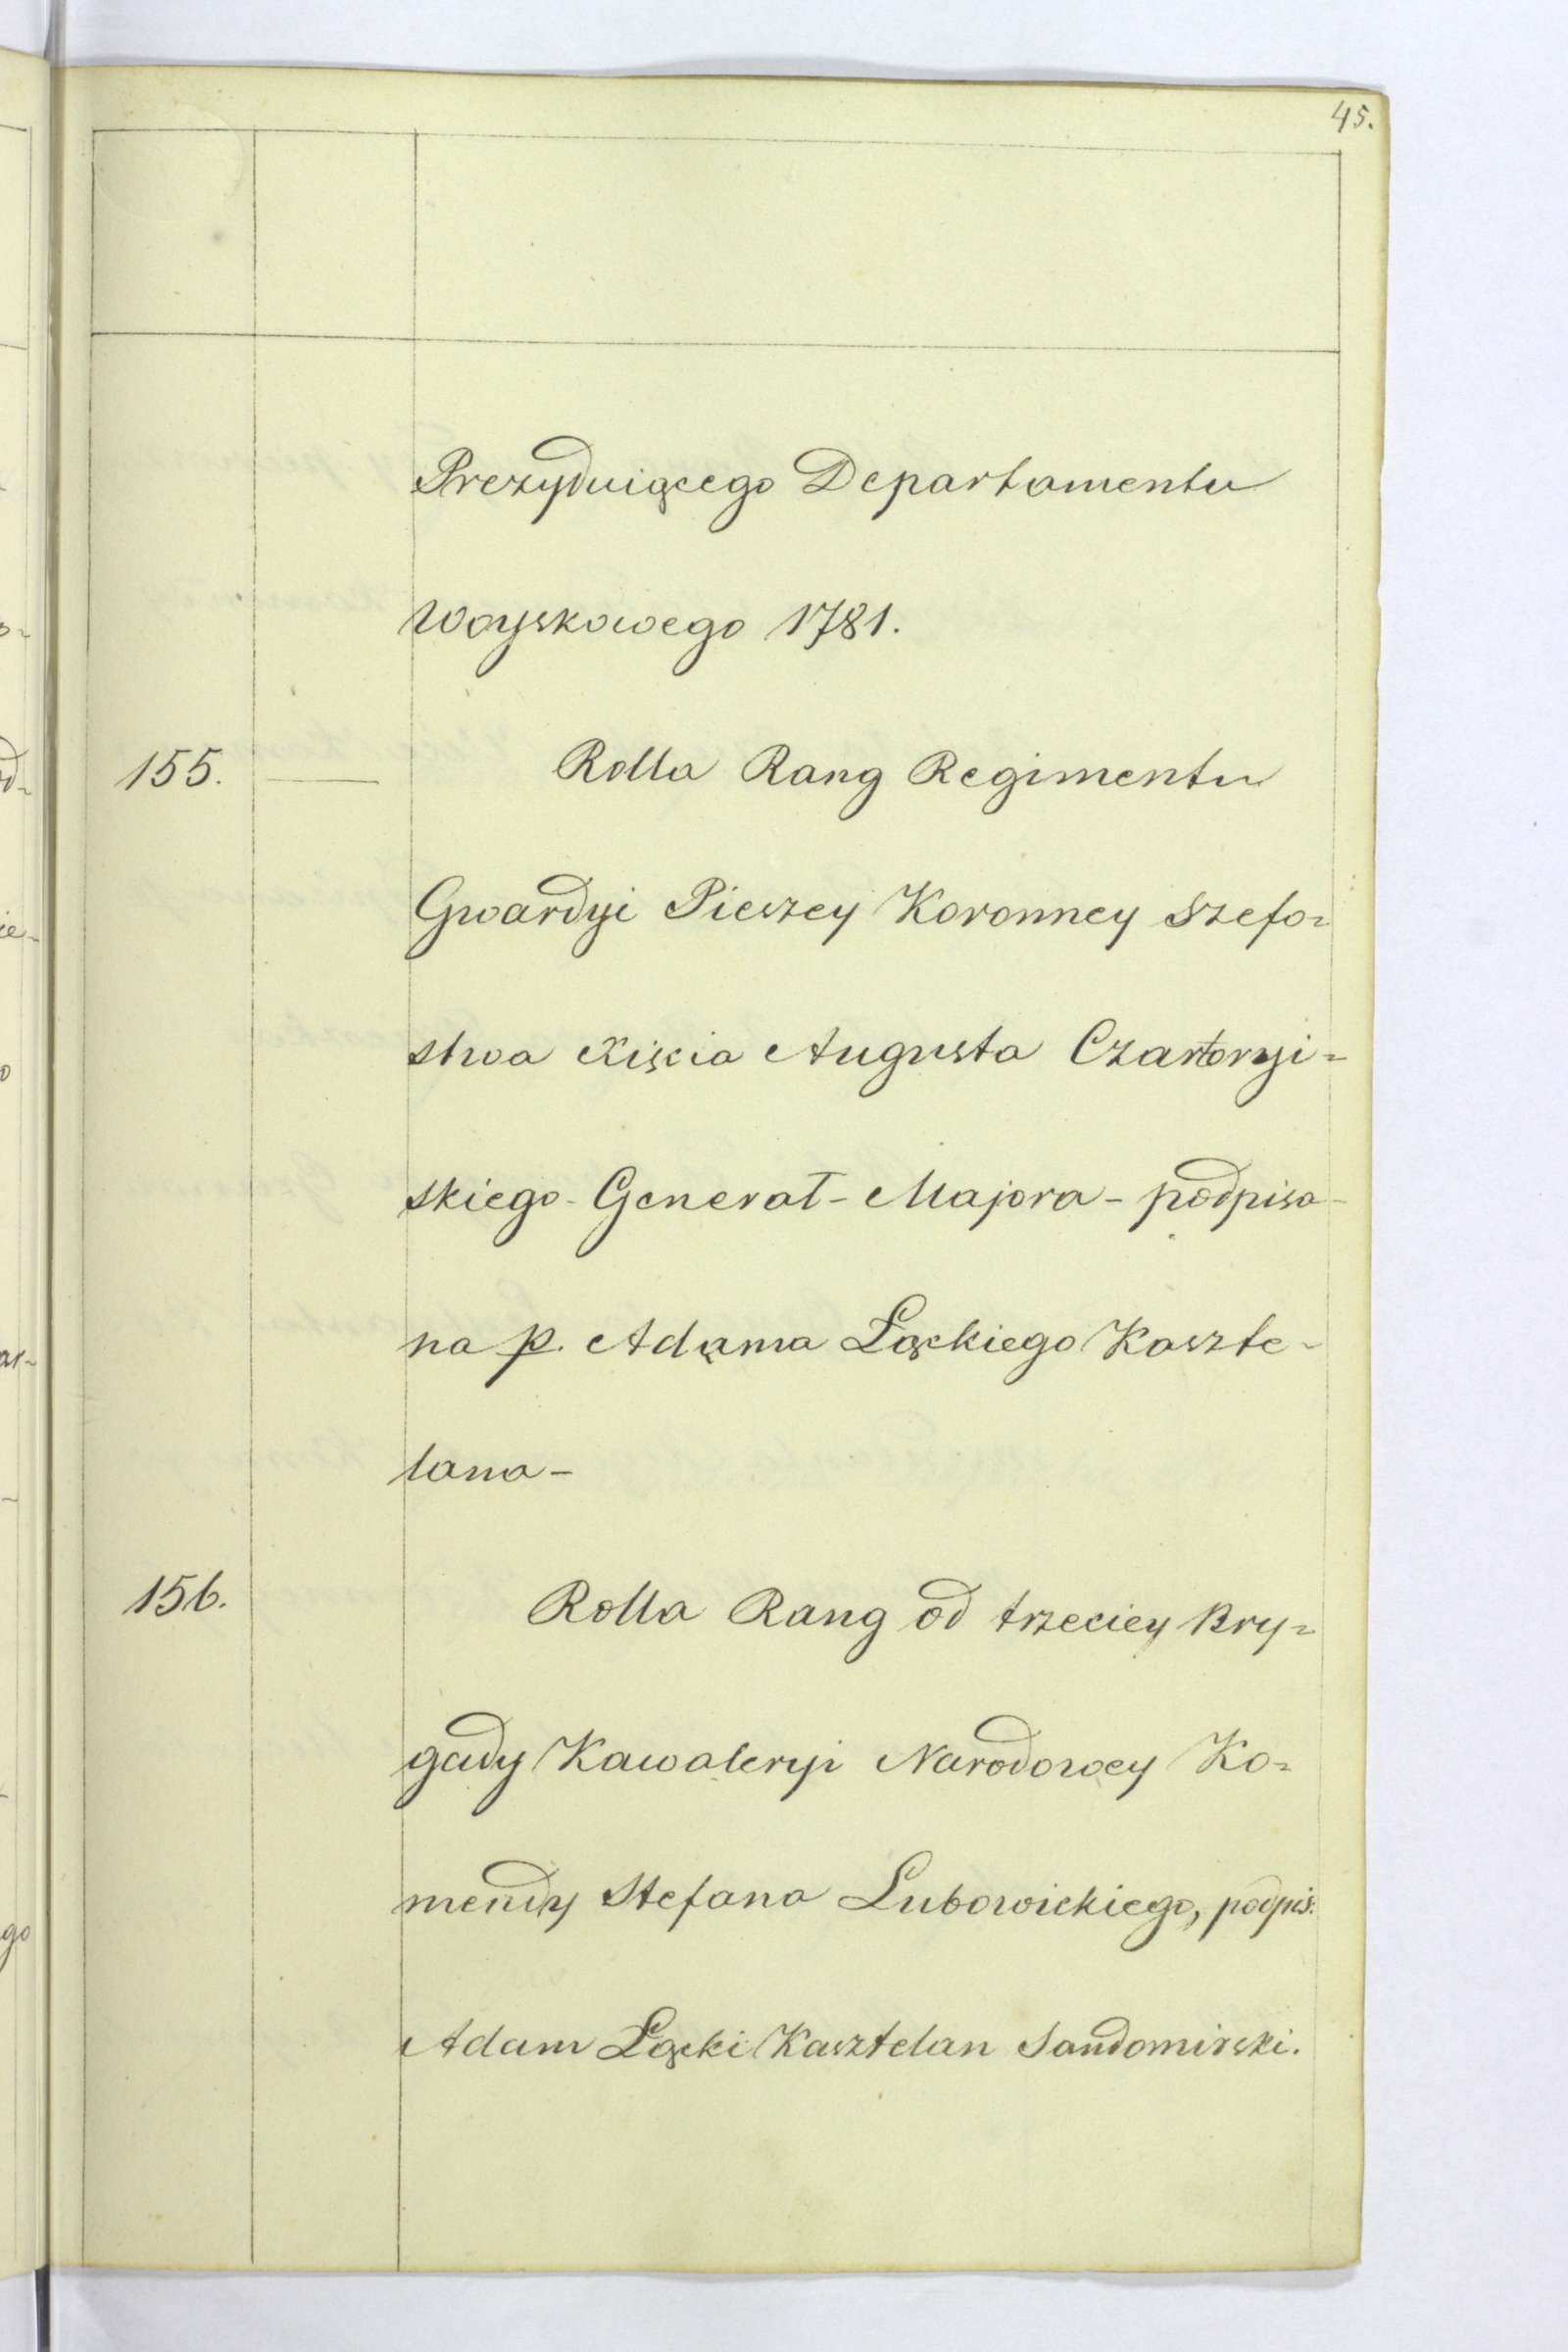 45.
Prezyduiącego Departamentu
Woyskowego 1781.
155. — Rolla Rang Regimentu
Gwardyi Pieszey Koronney Szefo=
stwa Xięcia Augusta Czartoryi=
skiego - Generał - Majora - podpisa-
na p. Adama Łąckiego Kaszte-
lana -
156. Rolla Rang od trzeciey Bry=
gady Kawaleryi Narodowey Ko=
mendy Stefana Lubowickiego, podpis.
Adam Łącki Kasztelan Sandomirski.